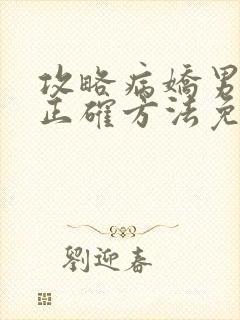 攻略病嬌男
正確方法免
劉迎春